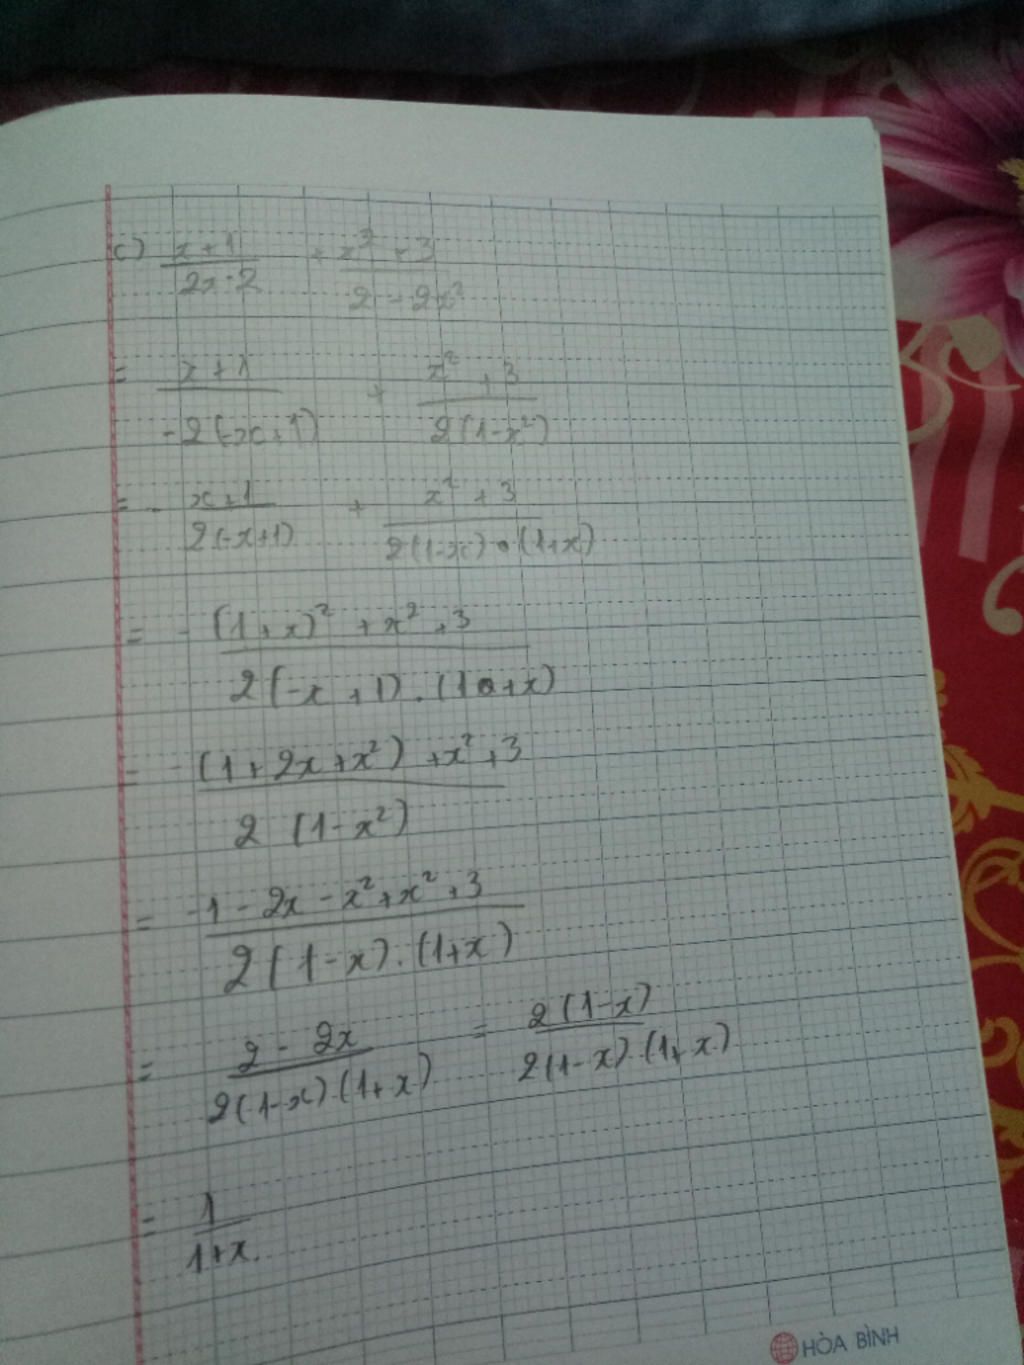 c) \frac{x+1}{2x-2} + \frac{x^2+3}{2-2x^2}
= \frac{x+1}{-2(-x+1)} + \frac{x^2+3}{2(1-x^2)}
= - \frac{x+1}{2(-x+1)} + \frac{x^2+3}{2(1-x).(1+x)}
= \frac{-(1+x)^2+x^2+3}{2(-x+1).(1+x)}
= \frac{-(1+2x+x^2)+x^2+3}{2(1-x^2)}
= \frac{-1-2x-x^2+x^2+3}{2(1-x).(1+x)}
= \frac{2-2x}{2(1-x).(1+x)} = \frac{2(1-x)}{2(1-x).(1+x)}
= \frac{1}{1+x}.
HÒA BÌNH